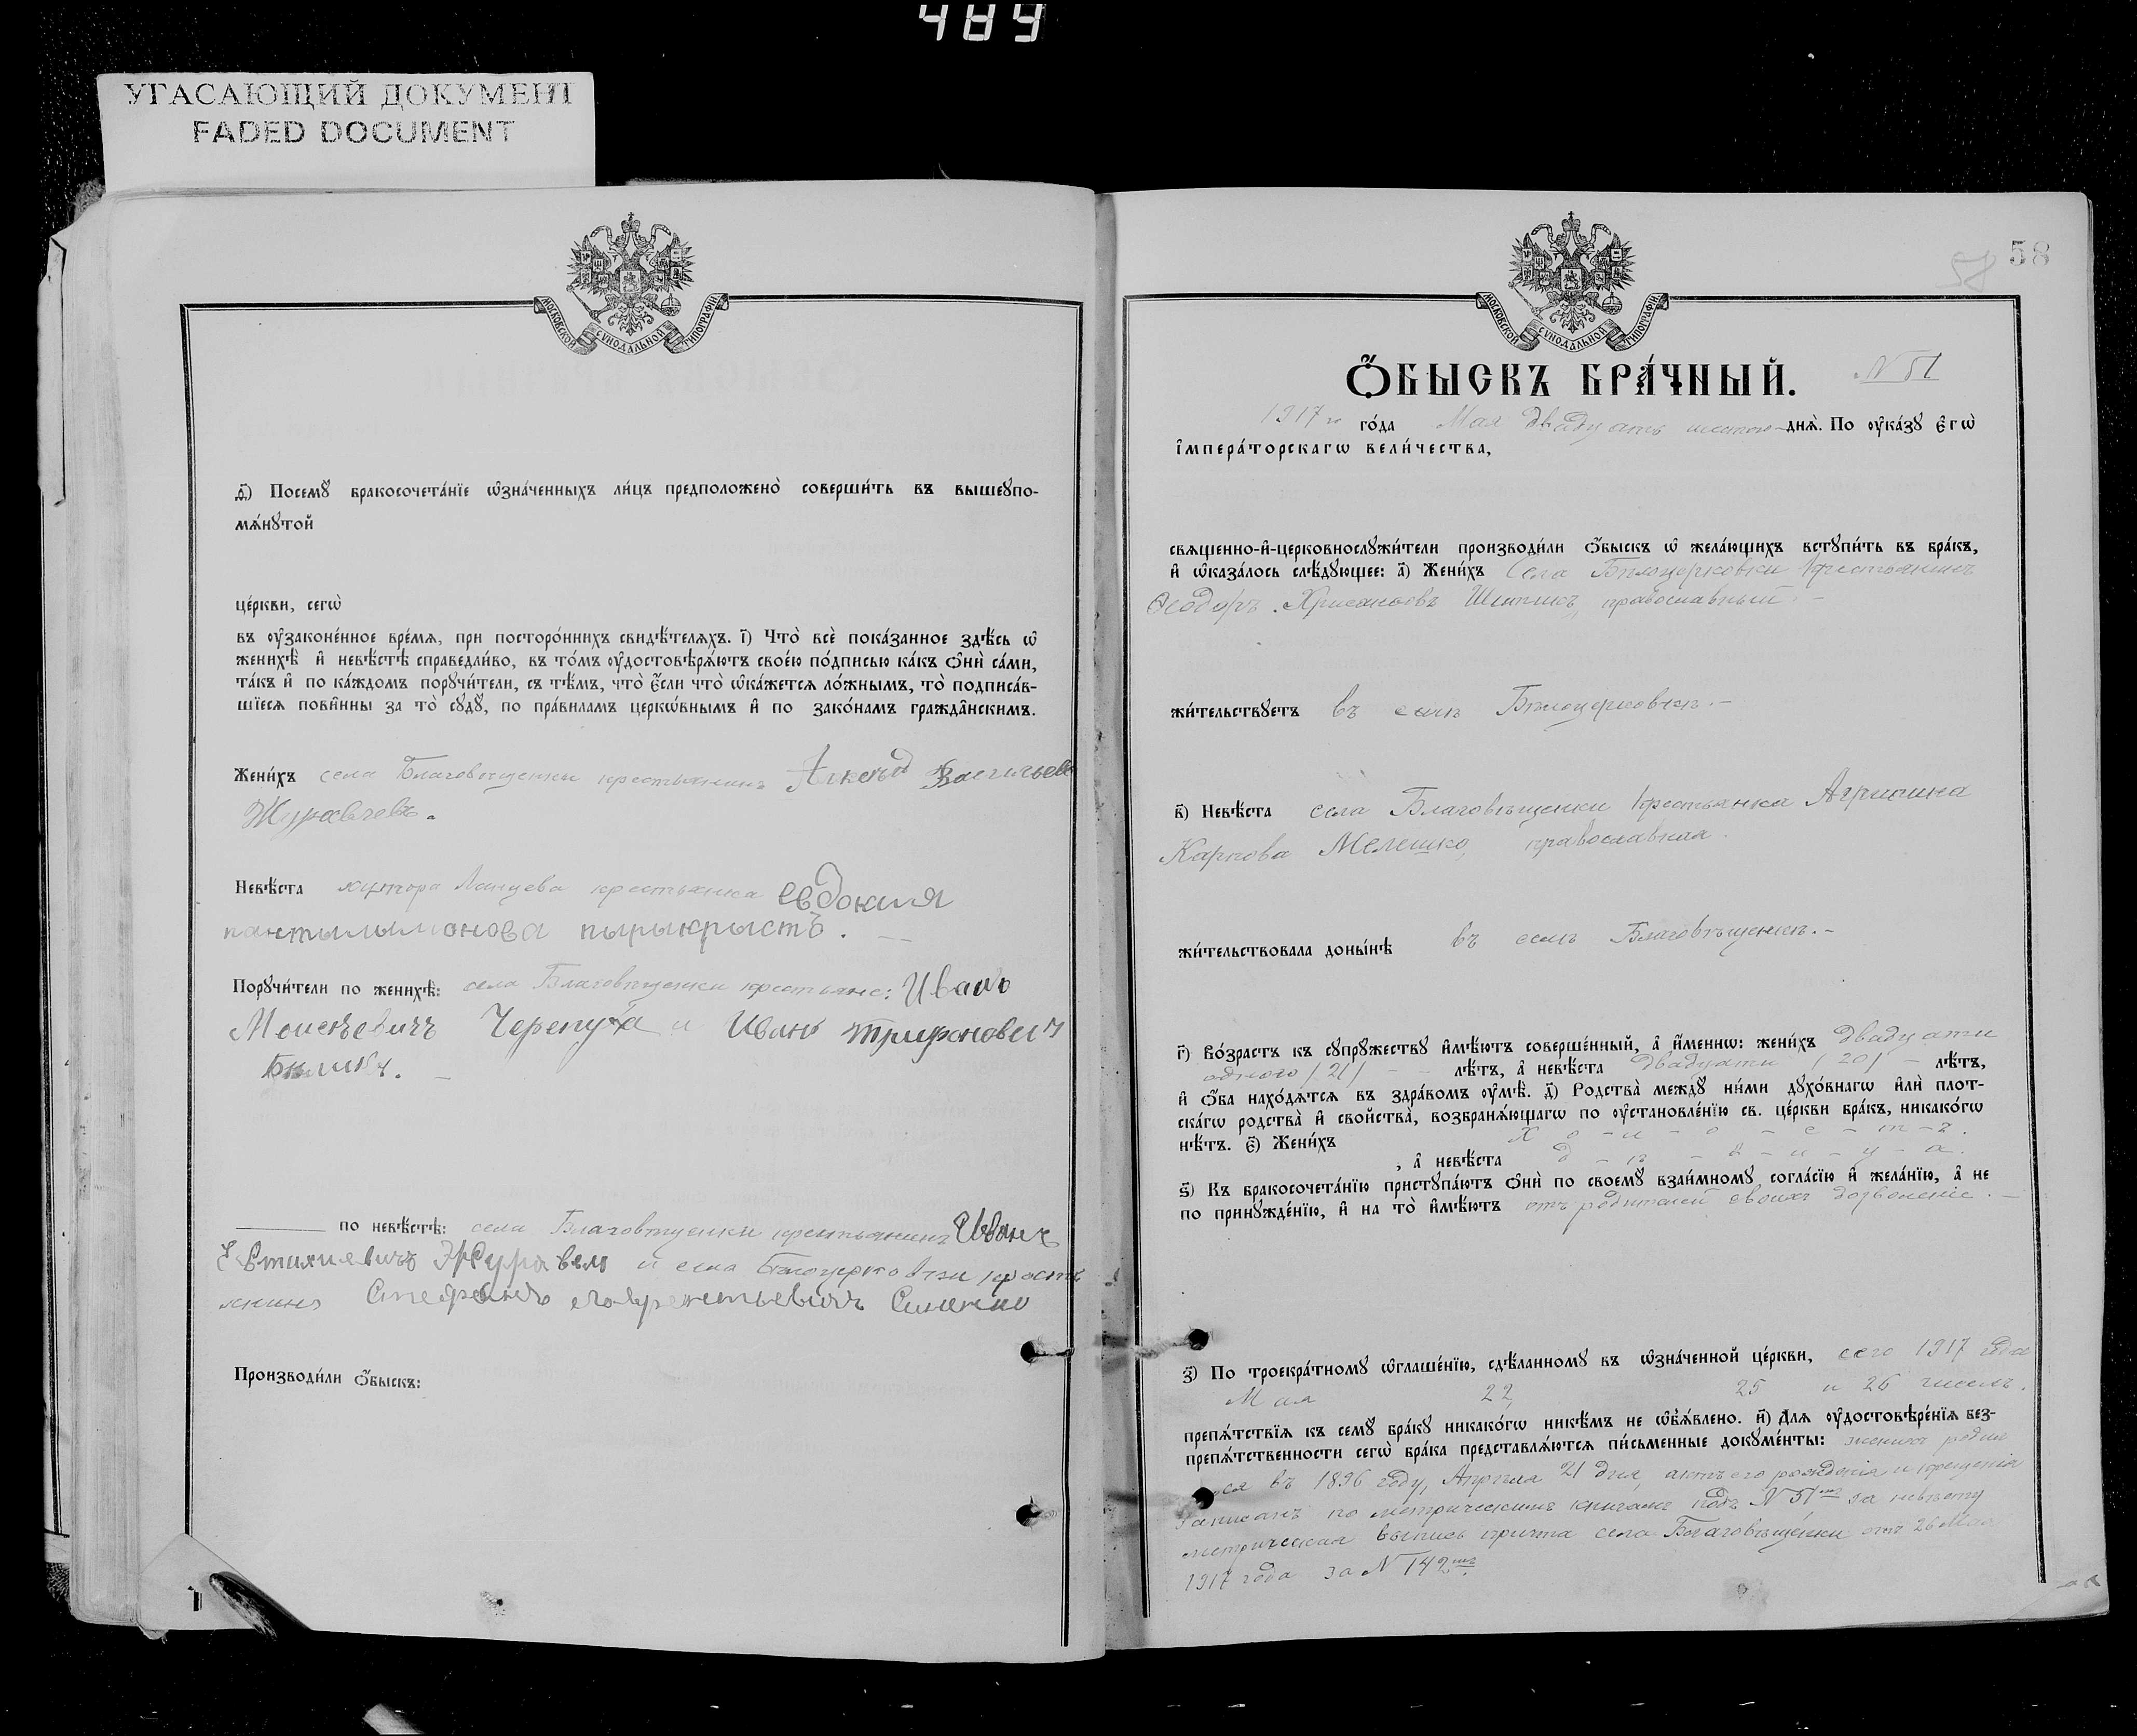 489
УГАСАЮЩИЙ ДОКУМЕНТ
FADED DOCUMENT
МОСКОВСКОЙ СѴНОДАЛЬНОЙ ТИПОГРАФІИ
ѳ҃) Посемꙋ̀ бракосочета́нїе ѡ҆зна́ченныхъ ли́цъ предположено̀ соверши́ть въ вышеꙋпо-
мѧ́нꙋтой
це́ркви, сегѡ̀
въ ᲂу҆законе́нное вре́мѧ, при посторо́ннихъ свидѣ́телѧхъ. і҃) Что̀ всѐ пока́занное здѣ́сь ѡ҆
женихѣ̀ и҆ невѣ́стѣ справедли́во, въ то́мъ ᲂу҆достовѣрѧ́ютъ свое́ю по́дписью ка́къ ѻ҆нѝ са́ми,
та́къ и҆ по ка́ждомъ порꙋчи́тели, съ тѣ́мъ, что̀ є҆́сли что̀ ѡ҆ка́жетсѧ ло́жнымъ, то̀ подписа́в-
шїесѧ пови́нны за то̀ сꙋдꙋ̀, по пра́виламъ церкѡ́внымъ и҆ по зако́намъ гражда̑нскимъ.
Жени́хъ села Благовѣщенки крестьянинъ Васильевъ
Журавлевъ.
Невѣ́ста хутора крестьянка Евдокия
пантылымонова пырыкрыстъ.
Порꙋчи́тели по женихѣ̀: села Благовѣщенки крестьяне: Иванъ
Моисѣевичъ Черепуха и Иванъ Трифановичъ
по невѣ́стѣ: села Благовѣщенки крестьянинъ Иванъ
Евтихиевичъ Журавель и села Бѣлоцерковки кресть
янинъ Стефанъ Лаврентьевичъ Синенко
Производи́ли ѻ҆́быскъ:
58
58
МОСКОВСКОЙ СѴНОДАЛЬНОЙ ТИПОГРАФІИ
Ѻ҆́БЫСКЪ БРА́ЧНЫЙ. N 51
1917 го го́да Мая двадцать шестого днѧ̀. По ᲂу҆ка́зꙋ є҆гѡ̀
і҆мпера́торскагѡ вели́чества,
свѧщенно-и҆-церковнослꙋжи́тели производи́ли ѻ҆́быскъ ѡ҆ жела́ющихъ встꙋпи́ть въ бра́къ,
и҆ ѡ҆каза́лось слѣ́дꙋющее: а҃) Жени́хъ Села Бѣлоцерковки крестьянинъ
Ѳеодоръ Хрисанѳовъ православный. –
жи́тельствꙋетъ въ селѣ Бѣлоцерковкѣ. –
в҃) Невѣ́ста села Благовѣщенки крестьянка Агрипина
Карпова Мелешко, православная.
жи́тельствовала доны́нѣ въ селѣ Благовѣщенкѣ. –
г҃) Во́зрастъ къ сꙋпрꙋ́жествꙋ и҆мѣ́ютъ соверше́нный, а҆ и҆́меннѡ: жени́хъ двадцати
одного /21/ – – лѣ́тъ, а҆ невѣ́ста двадцати /20/ – лѣ́тъ,
и҆ ѻ҆́ба нахо́дѧтсѧ въ здра́вомъ ᲂу҆мѣ̀. д҃) Родства̀ междꙋ̀ ни́ми дꙋхо́внагѡ и҆лѝ плот-
ска́гѡ родства̀ и҆ сво́йства, возбранѧ́ющагѡ по ᲂу҆становле́нїю св. це́ркви бра́къ, никако́гѡ
нѣ́тъ. є҃) Жени́хъ х – о – л – о – с – т – ъ.
, а҆ невѣ́ста д – ѣ – в – и – ц – а.
ѕ҃) Къ бракосочета́нїю пристꙋпа́ютъ ѻ҆нѝ по своемꙋ̀ взаи́мномꙋ согла́сїю и҆ жела́нїю, а҆ не
по принꙋжде́нїю, и҆ на то̀ и҆мѣ́ютъ отъ родителей своихъ дозволеніе. –
з҃) По троекра́тномꙋ ѡ҆глаше́нїю, сдѣ́ланномꙋ въ ѡ҆зна́ченной це́ркви, сего 1917 года
Мая 22, 25 и 26 чиселъ.
препѧ́тствїѧ къ семꙋ̀ бра́кꙋ никако́гѡ никѣ́мъ не ѡ҆б̾ѧ́влено. и҃) Длѧ ᲂу҆достовѣре́нїѧ без-
препѧ́тственности сегѡ̀ бра́ка представлѧ́ютсѧ пи́сьменные докꙋме́нты: женихъ родил
ся въ 1896 году, Апрѣля 21 дня, актъ его рожденія и крещенія
записанъ по метрическимъ книгамъ подъ N 51мъ за невѣсту
метрическая выпись причта села Благовѣщенки отъ 26 Мая
1917 года за N 142мъ.